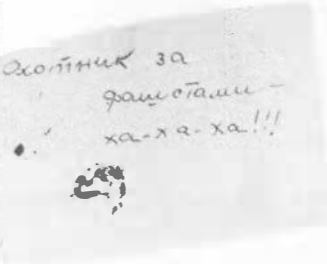 Охотник за
фашистами -
ха-ха-ха!!!